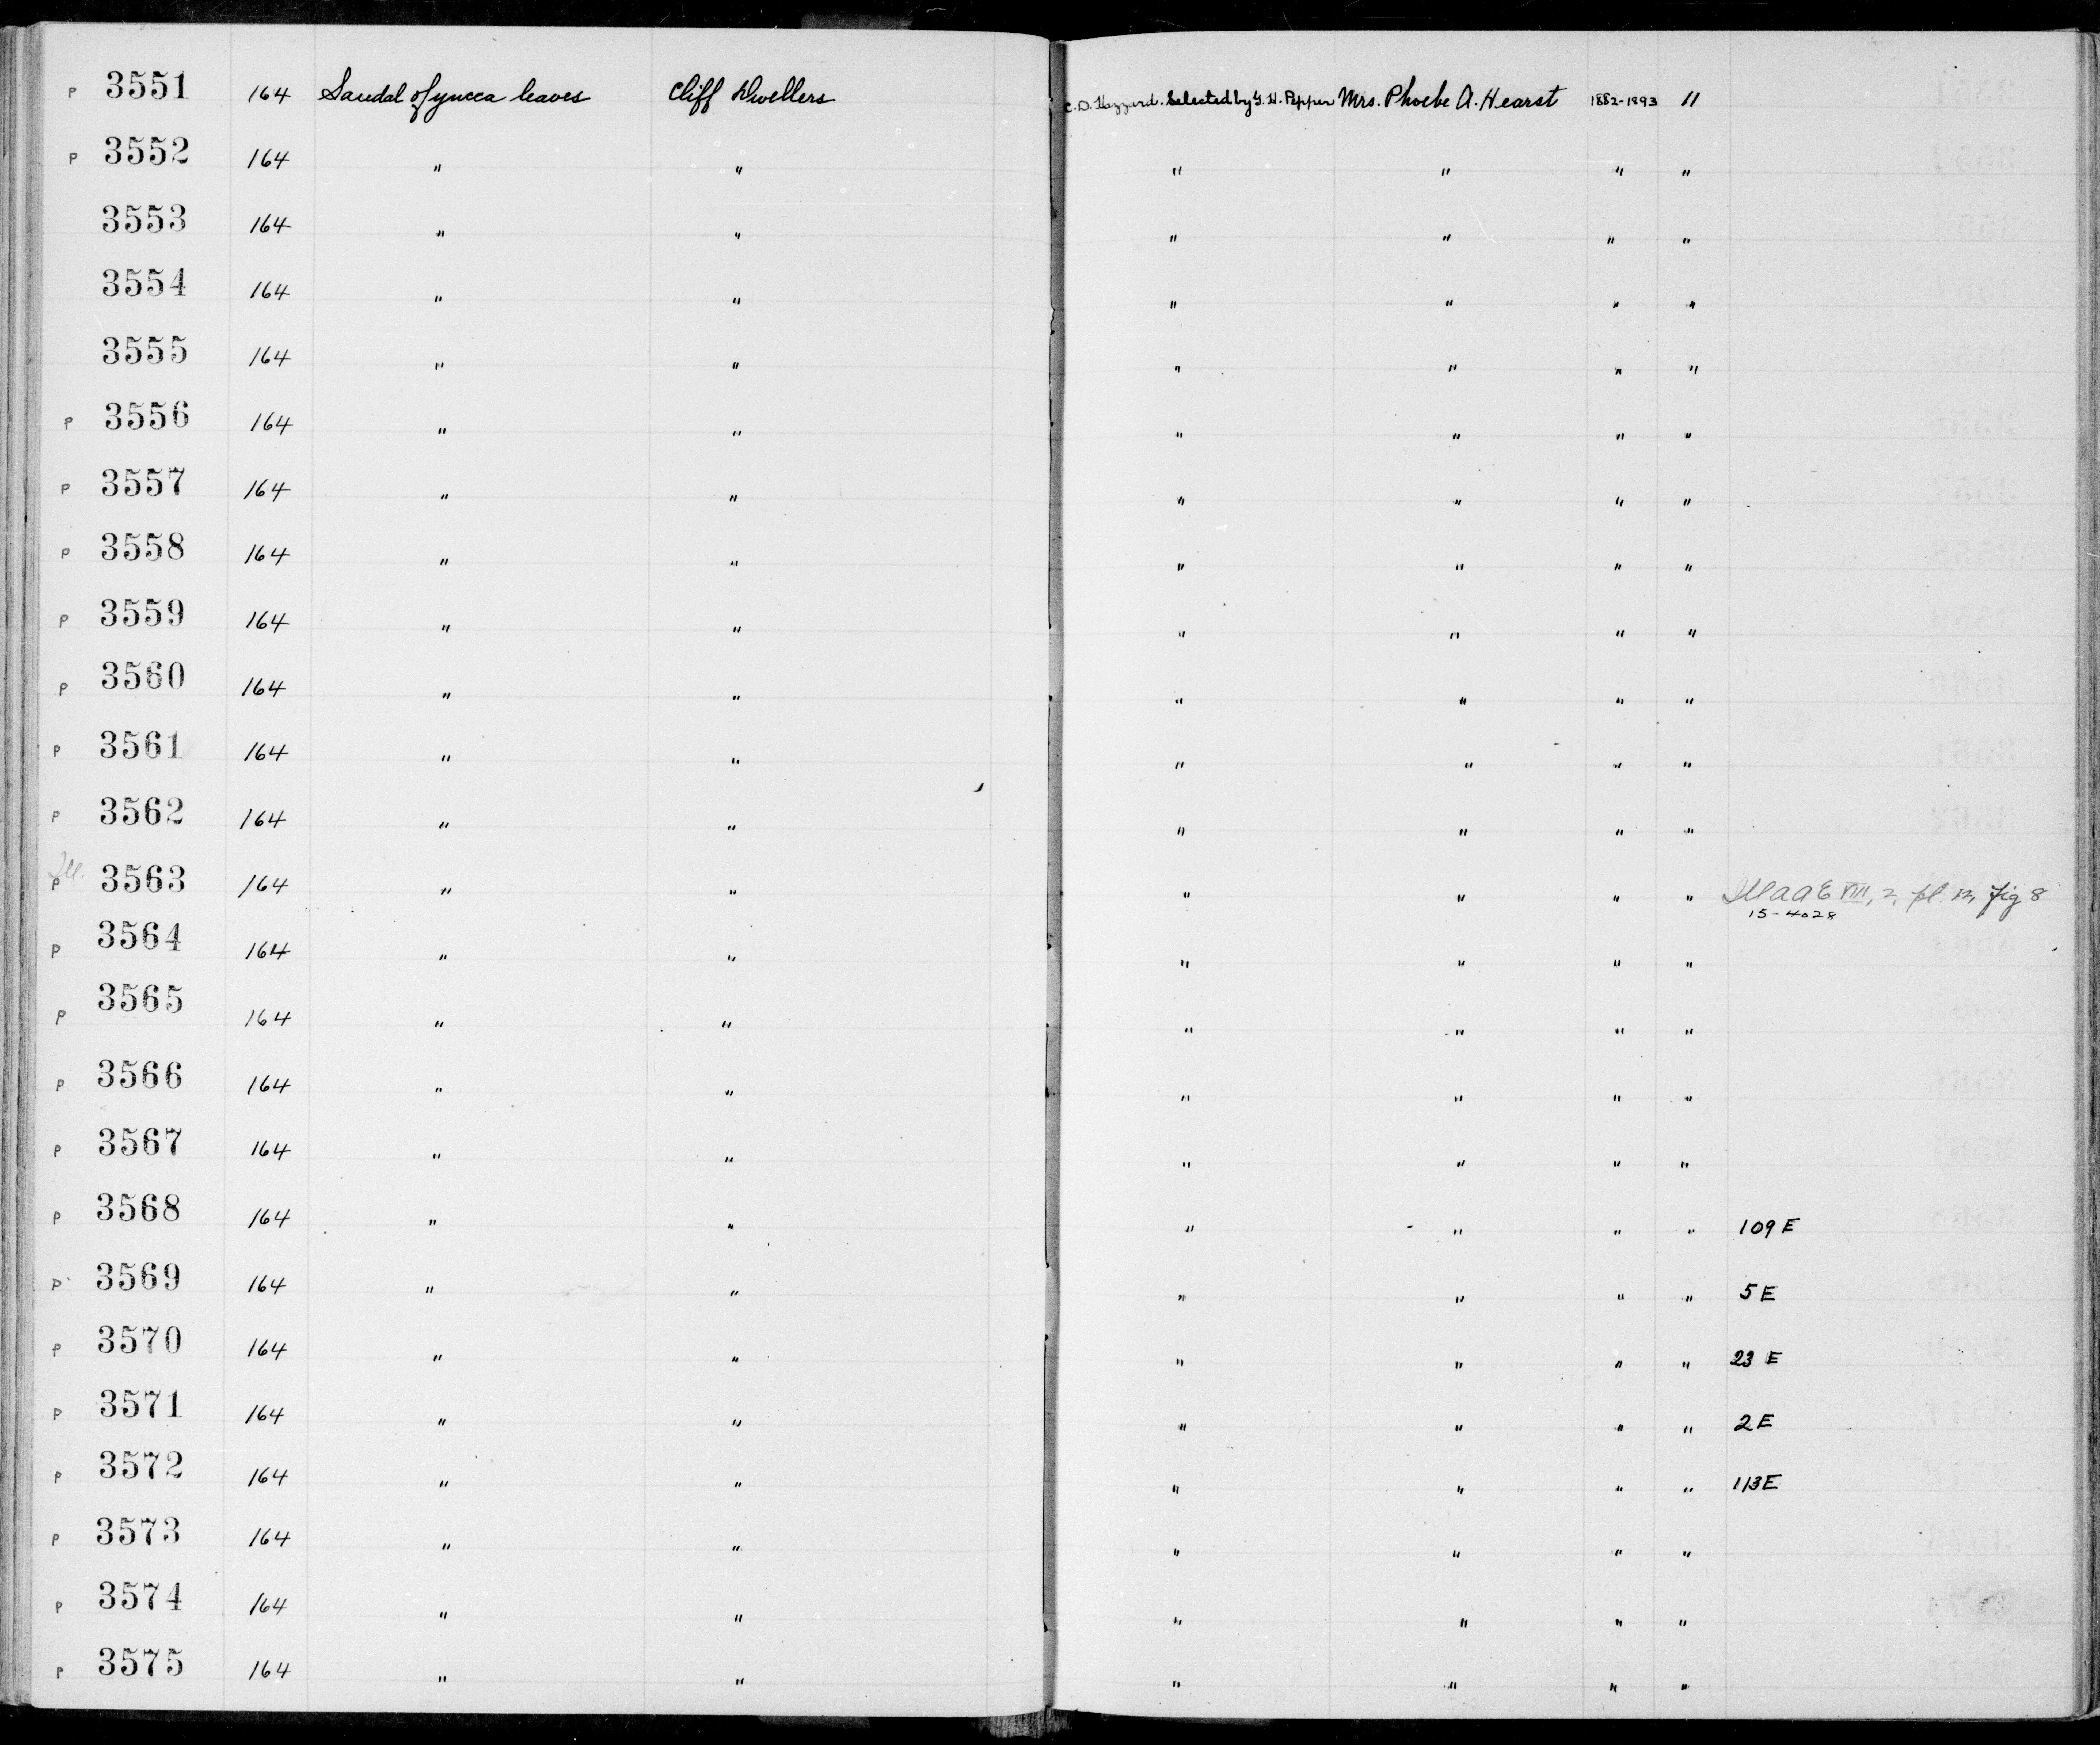 P 3551 164 Sandal of yucca leaves Cliff Dwellers C. D. Hazzard. Selected by G. H. Pepper Mrs. Phoebe A. Hearst 1882-1893 11
P 3552 164 " " " " " "
3553 164 " " " " " "
3554 164 " " " " " "
3555 164 " " " " " "
P 3556 164 " " " " " "
P 3557 164 " " " " " "
P 3558 164 " " " " " "
P 3559 164 " " " " " "
P 3560 164 " " " " " "
P 3561 164 " " " " " "
P 3562 164 " " " " " "
Ill.
P 3563 164 " " " " " " VIII, 2, pl. 12, fig 8
15-4028
P 3564 164 " " " " " "
P 3565 164 " " " " " "
P 3566 164 " " " " " "
P 3567 164 " " " " " "
P 3568 164 " " " " " " 109 E
P 3569 164 " " " " " " 5 E
P 3570 164 " " " " " " 23 E
P 3571 164 " " " " " " 2 E
P 3572 164 " " " " " " 113 E
P 3573 164 " " " " " "
P 3574 164 " " " " " "
P 3575 164 " " " " " "